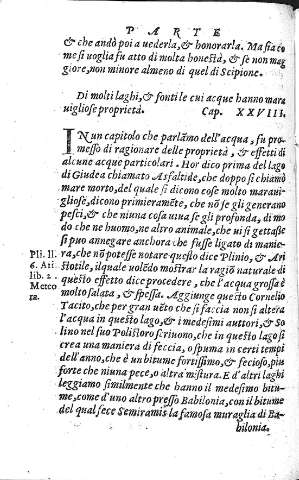 PARTE
& che andò poi a uederla, & honorarla. Ma sia co
me si uoglia fu atto di molta honestà, & se non mag
giore, non minore almeno di quel di Scipione.
Di molti laghi, & fonti le cui acque hanno mara
uigliose proprietà. Cap. XXVIII.
IN un capitolo che parlãmo dell'acqua, fu pro-
messo di ragionare delle proprietà, & effetti di
alcune acque particolari. Hor dico prima del lago
di Giudea chiamato Asfaltide, che doppo si chiamò
mare morto, del quale si dicono cose molto maraui-
gliose, dicono primieramẽte, che nõ se gli generano
pesci, & che niuna cosa uiua se gli profonda, di mo-
do che ne huomo, ne altro animale, che ui si gettasse
si puo annegare anchora che fusse ligato di manie-
ra, che nõ potesse notare questo dice Plinio, & Ari
stotile, il quale uolẽdo mostrar la ragiõ naturale di
questo effetto dice procedere, che l'acqua grossa è
molto salata, & spessa. Aggiunge questo Cornelio
Tacito, che per gran uẽto che si faccia non si altera
l'acqua in questo lago, & i medesimi auttori, & So
lino nel suo Polistoro scriuono, che in questo lago si
crea una maniera di feccia, o spuma in certi tempi
dell'anno, che è un bitume fortissimo, & fecioso, piu
forte che niuna pece, o altra mistura. E d'altri laghi
leggiamo similmente che hanno il medesimo bitu-
me, come d'uno altro presso Babilonia, con il bitume
del qual fece Semiramis la famosa muraglia di Ba-
bilonia.
Pli. li.
6. Ari.
lib. 2.
Meteo
ra.